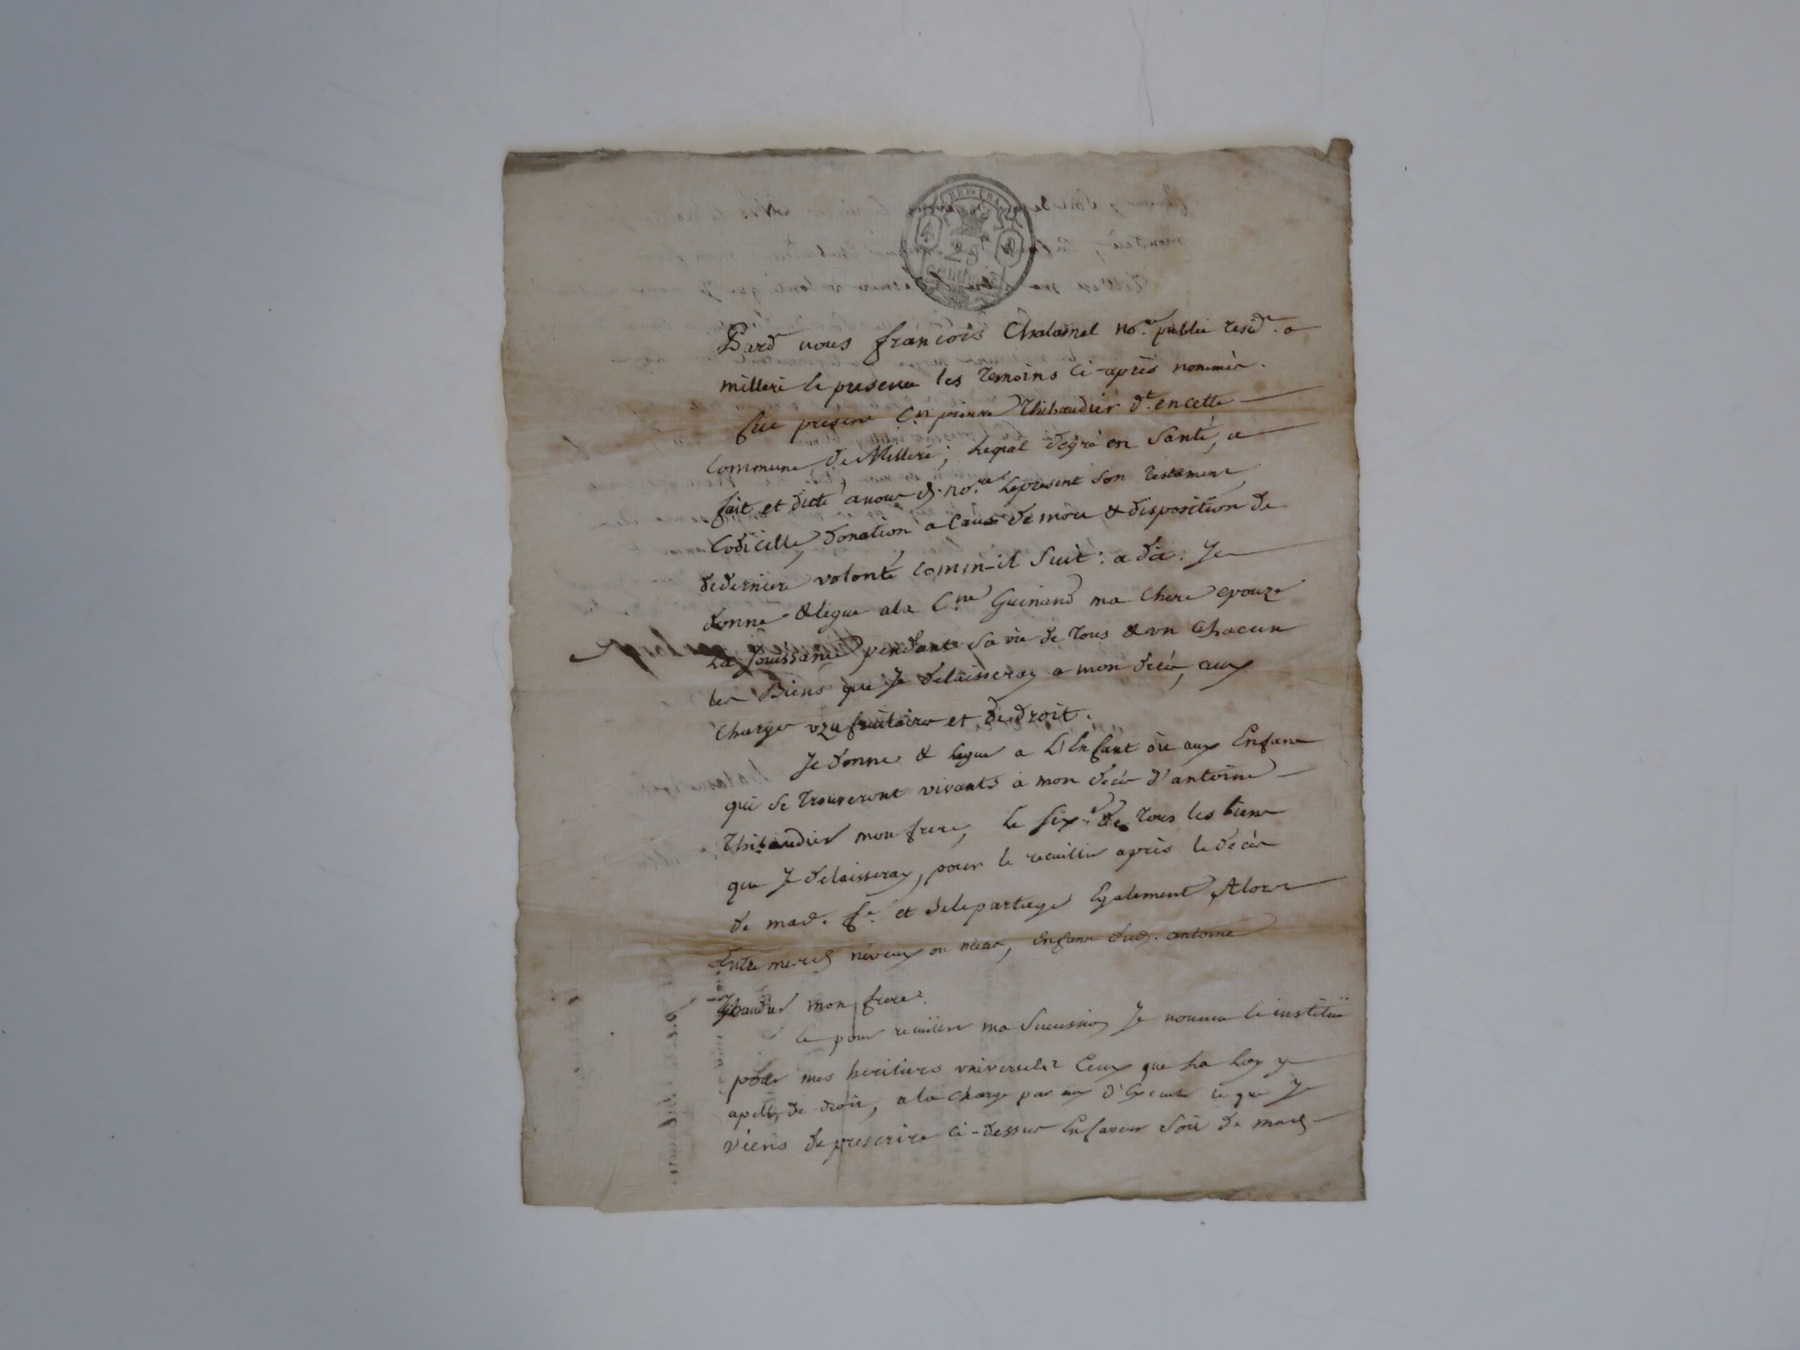 REP. FRA.
25
centimes
Pard nous françois Chalamel no.re public resid.t a
milleri le presence les temoins ci-après nommés.
fut present C.en pierre Thibaudier d.t en cette
commune de Milleri; lequel degré en Santé, a
fait et dicté a nous d. no.re le present son testament
Codicille, donation a cause de mort & disposition de
de derniere volonté comm-il suit: a dix: Je
donne & legue a la C.ne Guinand ma chere epouze
La Jouissance pendante sa vie de tous & un chacun
les Biens que Je delaisseray a mon decès, aux
charges uzufruitaires et de droit.
Je donne & legue a L'Enfant ou aux Enfans
qui se trouveront vivants à mon decès d'antoine
Thibaudier mon frere, le six.e de tous les biens
que J delaisseray, pour le recuillir après le decès
de mad. f.e et se le partager Egalement Alors
Entre mesd neveux ou nieces, Enfans dud. antoine
Thibaudier mon frere.
le pour recuillir ma succession Je nomme le institue
pour mes heritiers universels Ceux que La Loy y
apelle de droit, a la charge par eux d'Executer ce que Je
viens de prescrire ci-dessus En faveur soit de mad